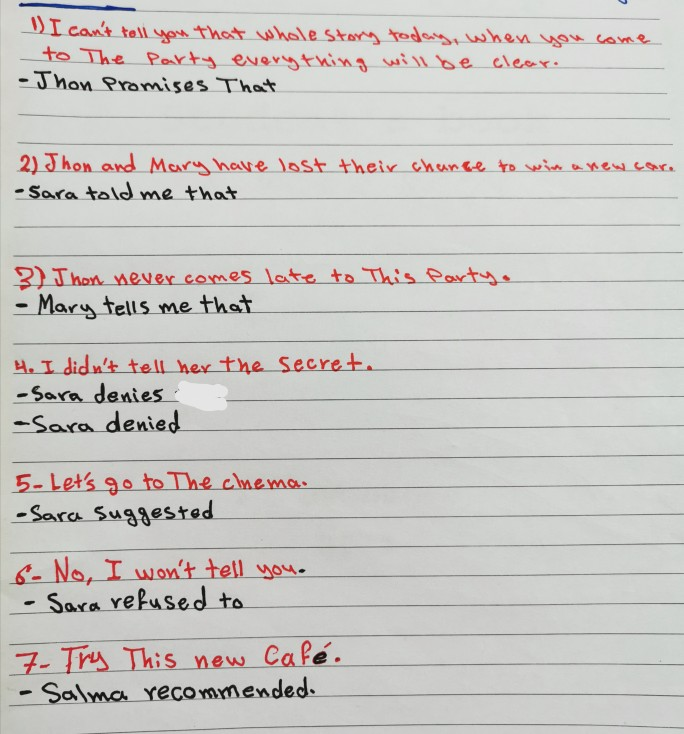 1) I can't tell you that whole story today, when you come
to The Party everything will be clear.
- Jhon Promises That
2) Jhon and Mary have lost their chance to win a new car.
- Sara told me that
3) Jhon never comes late to This Party.
- Mary tells me that
4. I didn't tell her the secret.
- Sara denies
- Sara denied
5- Let's go to The cinema.
- Sara suggested
6- No, I won't tell you.
- Sara refused to
7- Try This new Café.
- Salma recommended.